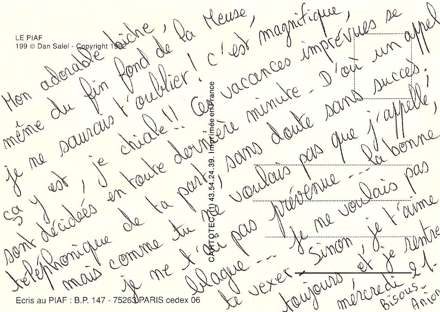 LE PIAF
199 © Dan Salel - Copyright 199
Mon adorable biche,
même du fin fond de la Meuse,
je ne saurais t'oublier! C'est magnifique,
ça y est, je chiale!! Ces vacances imprévues se
sont décidées en toute dernière minute - D'où un appel
téléphonique de ta part, sans doute sans succès.
mais comme tu ne voulais pas que j'appelle,
je ne t'ai pas prévenue - la bonne
blague... je ne voulais pas
te vexer. Sinon, je t'aime
toujours et je rentre
mercredi 21.
Bisous.
CARTOTEC (1) 43.54.24.39. Imprimée en France
Ecris au PIAF : B.P. 147 - 75263 PARIS cedex 06